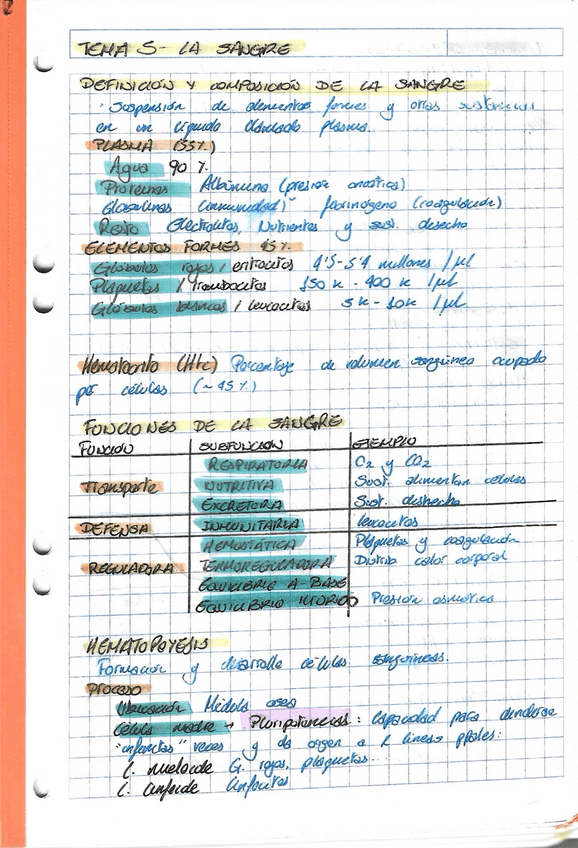 TEMA 5- LA SANGRE
DEFINICIÓN Y COMPOSICIÓN DE LA SANGRE
· Suspensión de elementos formes y otras sustancias
en un líquido llamado plasma.
PLASMA (55%)
Agua 90 %.
Proteínas Albúmina (presión oncótica)
Globulinas (inmunidad) fibrinógeno (coagulación)
Resto Electrolitos, Nutrientes y sust. desecho
ELEMENTOS FORMES 45%.
Glóbulos rojos / eritrocitos 4'5-5'4 millones /µl
Plaquetas / trombocitos 150 K - 400 K /µl
Glóbulos blancos / leucocitos 5K - 10K /µl
Hematocrito (Htc) Porcentaje de volumen sanguíneo ocupado
por células (~45%)
FUNCIONES DE LA SANGRE
FUNCIÓN SUBFUNCIÓN EJEMPLO
RESPIRATORIA O2 y CO2
Transporte NUTRITIVA Sust. alimentan células
EXCRETORA Sust. deshecho
DEFENSA INMUNITARIA leucocitos
HEMOSTÁTICA Plaquetas y coagulación
REGULADORA TERMOREGULADORA Distrib calor corporal
EQUILIBRIO A-BASE
EQUILIBRIO HÍDRICO Presión osmótica
HEMATOPOYESIS
Formación y desarrollo células sanguíneas.
Proceso
Ubicación Médula osea
Célula madre → Pluripotencial: capacidad para dividirse
"infinitas" veces y da origen a 2 líneas ppales:
L. mieloide G. rojos, plaquetas...
L. linfoide linfocitos